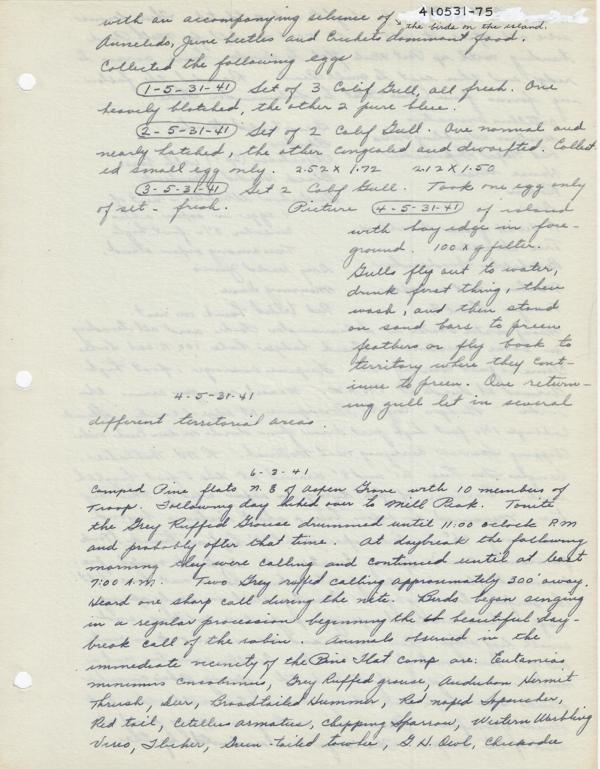 410531-75
with an accompanying silence of the birds on the island.
Annelids, June beetles and Crickets dominant food.
Collected the following eggs
1-5-31-41 Set of 3 Calif Gull, all fresh. One
heavily blotched, the other 2 pure blue.
2-5-31-41 Set of 2 Calif Gull. One normal and
nearly hatched, the other congealed and dwarfted. Collect
ed small egg only. 2.52 x 1.72 2.12 x 1.50
3-5-31-41 Set 2 Calif Gull. Took one egg only
of set - fresh. Picture 4-5-31-41 of island
with bay edge in fore-
ground. 100 x g filter.
Gulls fly out to water,
drink first thing, then
wash, and then stand
on sand bars to preen
feathers or fly back to
territory where they cont-
inue to preen. One return-
ing gull lit in several
4-5-31-41
different territorial areas.
6-3-41
Camped Pine flats N. E of Aspen Grove with 10 members of
Troop. Following day hiked over to Mill Peak. Tonite
the Grey Ruffed Grouse drummed until 11:00 oclock P.M
and probably after that time. At daybreak the following
morning they were calling and continued until at least
7:00 A.M. Two Grey rufed calling approximately 300' away.
Heard one sharp call during the nite. Birds began singing
in a regular procession beginning the beautiful day-
break call of the robin. Animals observed in the
immediate vicinity of the Pine Flat camp are: Eutamias
minimus consobrinus, Grey Ruffed grouse, Audubon Hermit
Thrush, Deer, Broadtailed Hummer, Red naped Sapsucker,
Red tail, Citellus armatus, Chipping Sparrow, Western Warbling
Vireo, Flicker, Green-tailed towhee, G. H. Owl, Chickadee